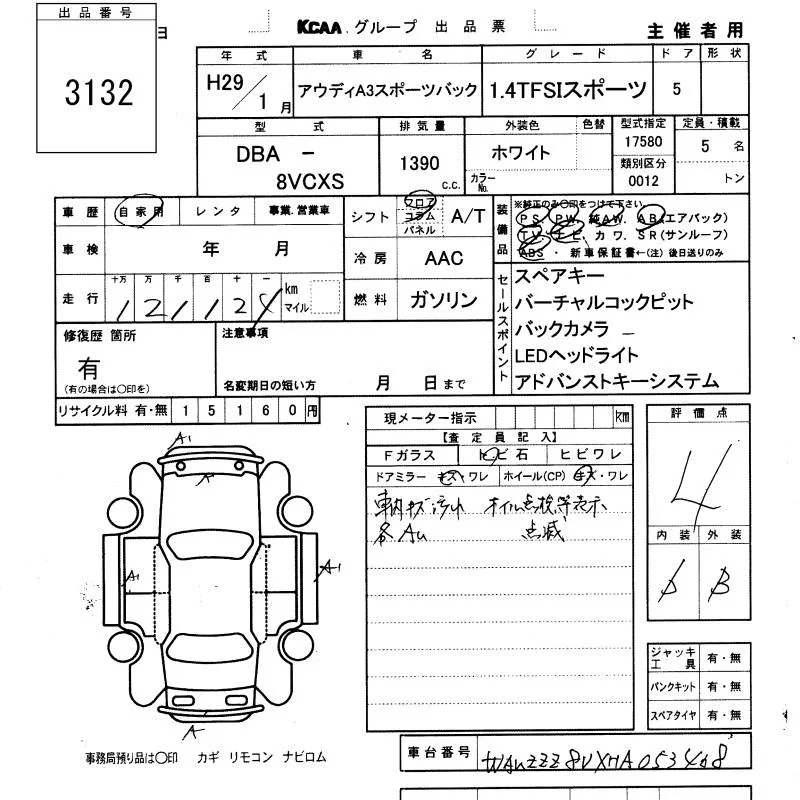 出品番号
3132
日
KCAA グループ 出品票
主催者用
年式 車名 グレード ドア 形状
H29/1月 アウディA3スポーツバック 1.4TFSIスポーツ 5
型式 排気量 外装色 色替 型式指定 定員・積載
DBA - 8VCXS
1390 C.C.
ホワイト
カラーNo.
17580
類別区分
0012
5 名
トン
車歴 自家用 レンタ 事業.営業車
車検 年 月
走行 十万 万 千 百 十 一
1 2 1 1 2 km マイル
シフト フロア コラム パネル A/T
冷房 AAC
燃料 ガソリン
装備品
※純正のみ○印をつけて下さい
PS. PW. 純AW. AB(エアバック)
TV. ナビ. カワ. SR(サンルーフ)
ABS ・ 新車保証書←(注) 後日送りのみ
セールスポイント
スペアキー
バーチャルコックピット
バックカメラ
LEDヘッドライト
アドバンストキーシステム
修復歴 箇所
有
(有の場合は○印を)
注意事項
名変期日の短い方 月 日まで
リサイクル料 有・無 15160円
現メーター指示 km
【査定員記入】
Fガラス トビ石 ヒビワレ
ドアミラー キズ・ワレ ホイール(CP) キズ・ワレ
車内キズ・汚れ オイル点検等表示
各AU 点滅
評価点
4
内装 外装
B
A1
A
A1
A1
A
ジャッキ工具 有・無
パンクキット 有・無
スペアタイヤ 有・無
事務局預り品は○印 カギ リモコン ナビロム
車台番号 WAUZZZ8VXHA053468